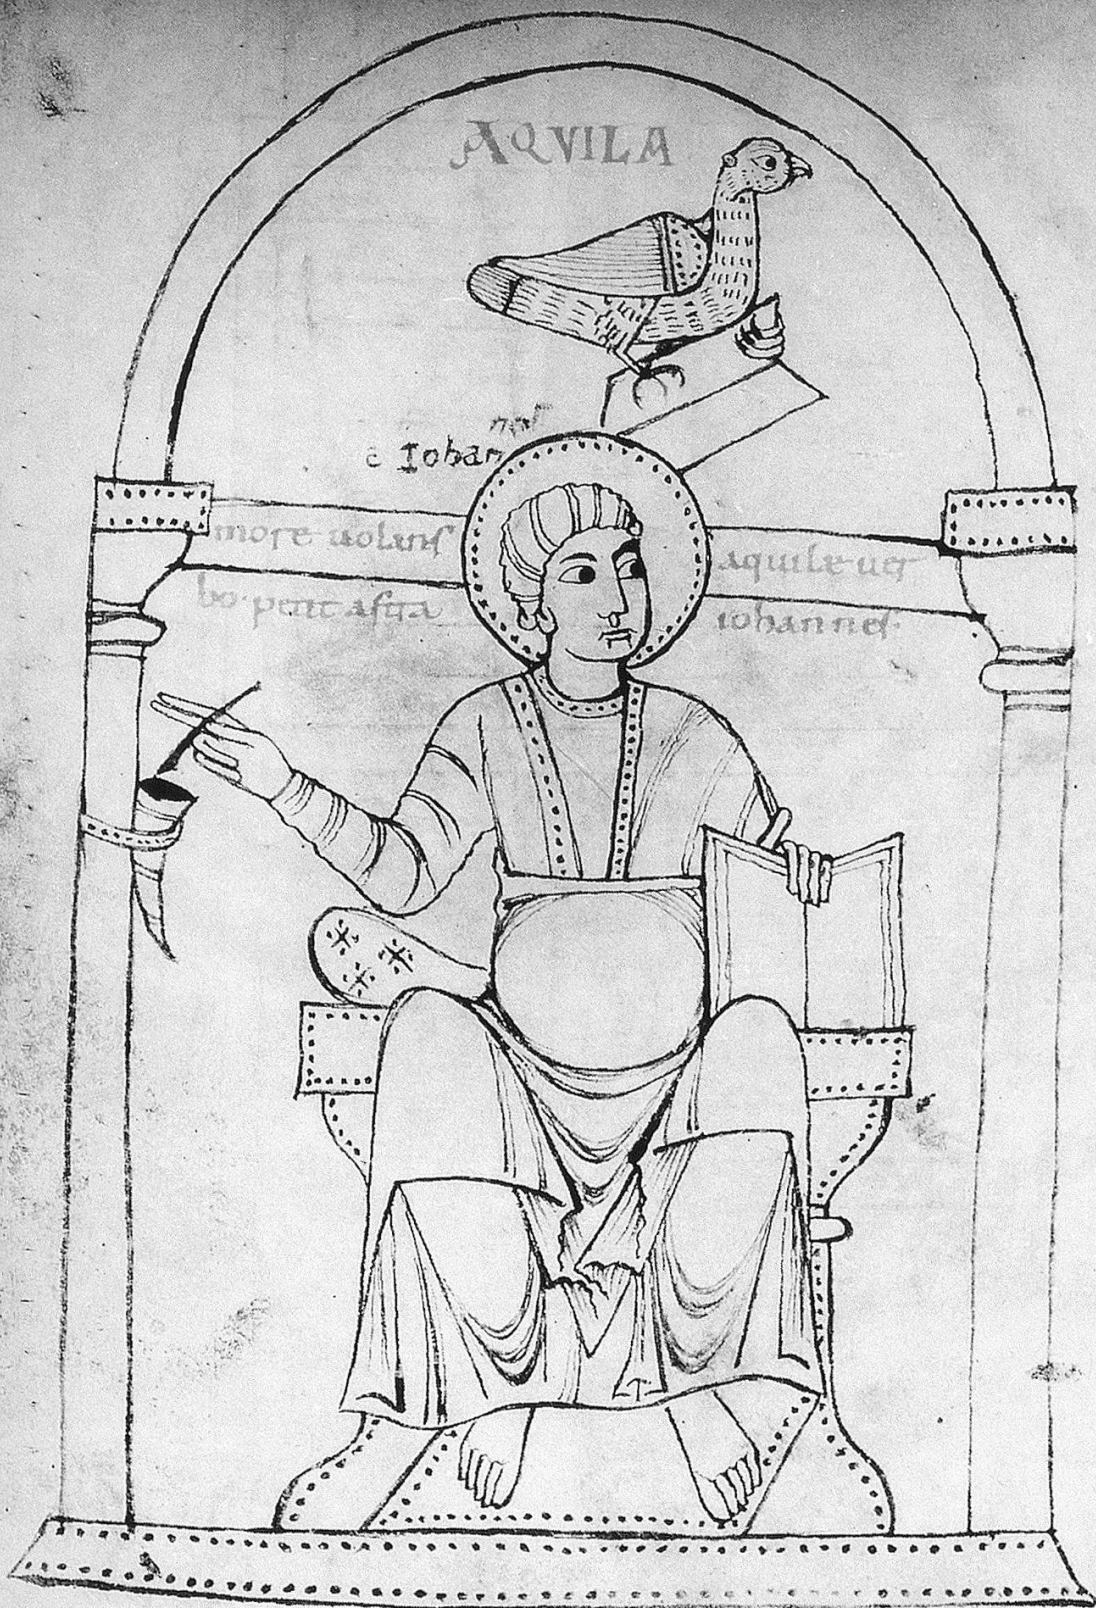 AQVILA
c Iohan
more uolanſ aquilæ uer
bo· petit aſtra iohanneſ·